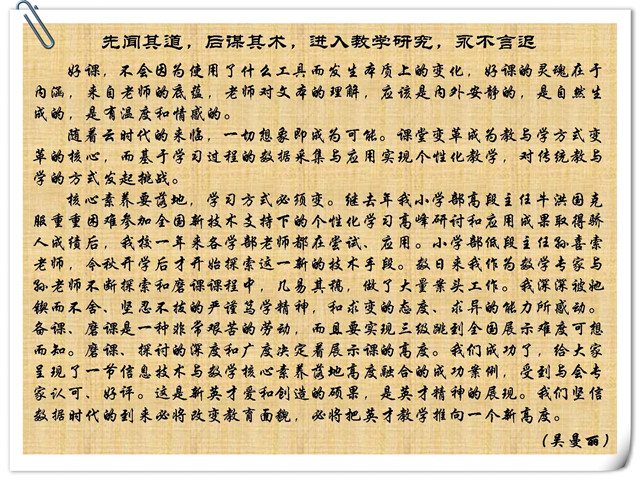 先闻其道，后谋其术，进入教学研究，永不言迟
好课，不会因为使用了什么工具而发生本质上的变化，好课的灵魂在于
内涵，来自老师的底蕴，老师对文本的理解，应该是内外安静的，是自然生
成的，是有温度和情感的。
随着云时代的来临，一切想象即成为可能。课堂变革成为教与学方式变
革的核心，而基于学习过程的数据采集与应用实现个性化教学，对传统教与
学的方式发起挑战。
核心素养要落地，学习方式必须变。继去年我小学部高段主任牛洪国克
服重重困难参加全国新技术支持下的个性化学习高峰研讨和应用成果取得骄
人成绩后，我校一年来各学部老师都在尝试、应用。小学部低段主任孙喜索
老师，今秋开学后才开始探索这一新的技术手段。数日来我作为数学专家与
孙老师不断探索和磨课课程中，几易其稿，做了大量案头工作。我深深被她
锲而不舍、坚忍不拔的严谨笃学精神，和求变的态度、求异的能力所感动。
备课、磨课是一种非常艰苦的劳动，而且要实现三级跳到全国展示难度可想
而知。磨课、探讨的深度和广度决定着展示课的高度。我们成功了，给大家
呈现了一节信息技术与数学核心素养落地高度融合的成功案例，受到与会专
家认可、好评。这是新英才爱和创造的硕果，是英才精神的展现。我们坚信
数据时代的到来必将改变教育面貌，必将把英才教学推向一个新高度。
（吴曼丽）